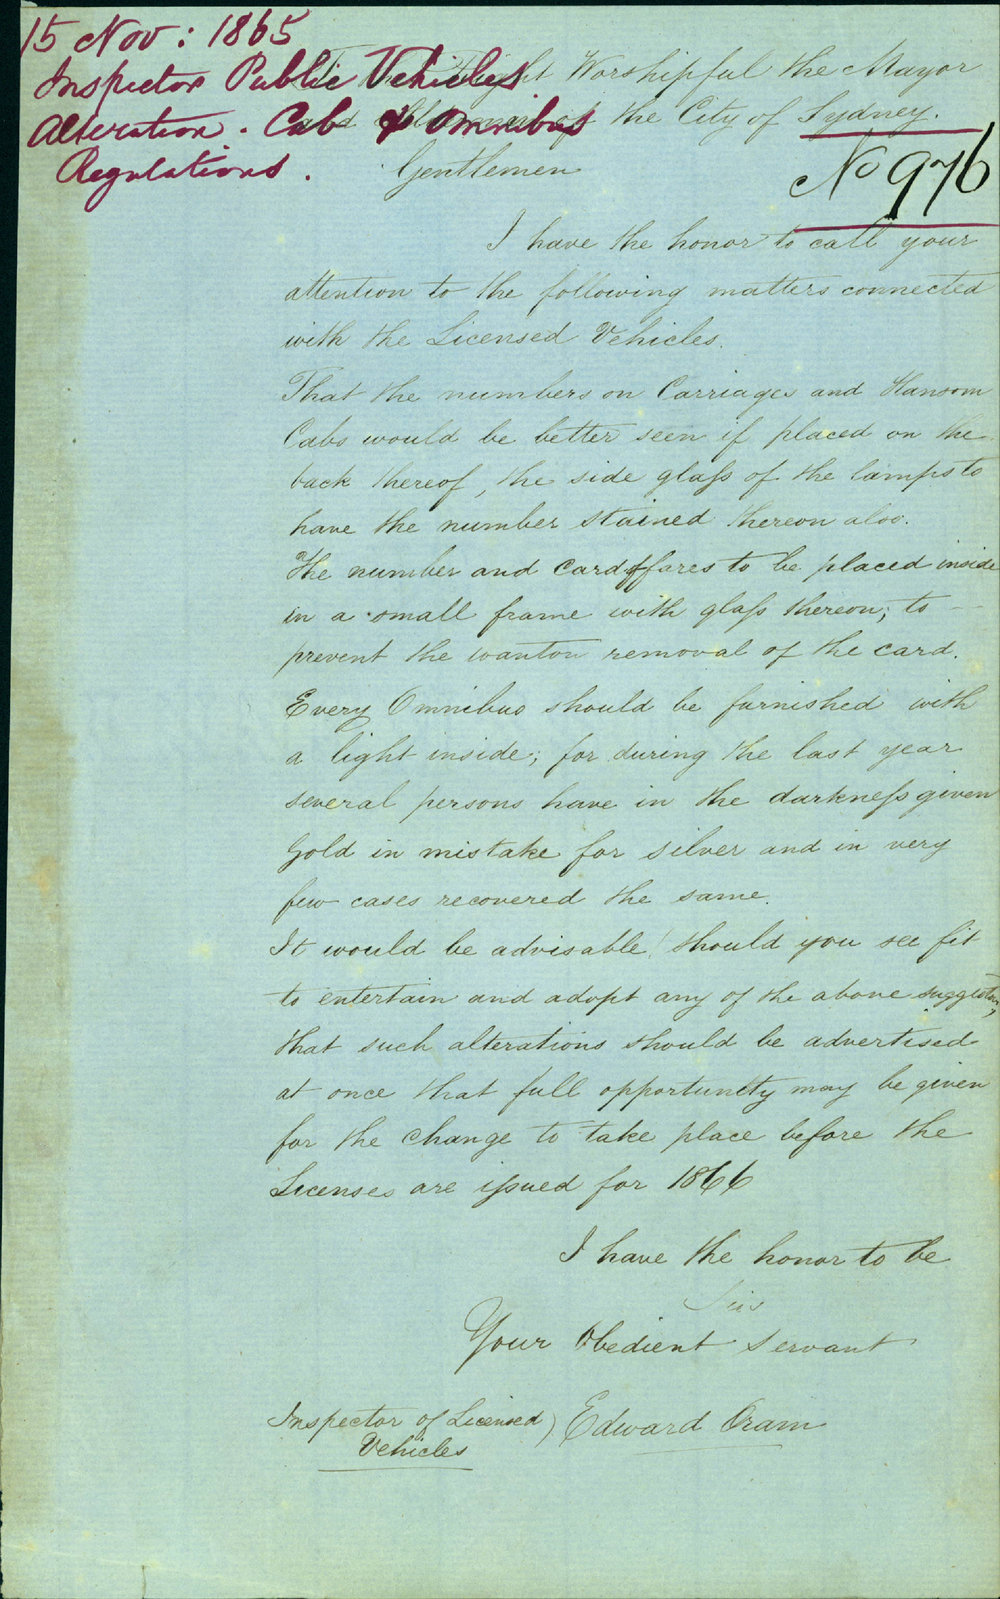 15 Nov: 1865
Inspector Public Vehicles
Alteration. Cab & Omnibus
Regulations.
Right Worshipful the Mayor
and Aldermen of the City of Sydney.
No 976
Gentlemen
I have the honor to call your
attention to the following matters connected
with the Licensed Vehicles.
That the numbers on Carriages and Hansom
Cabs would be better seen if placed on the
back thereof, the side glass of the lamps to
have the number stained thereon also.
The number and card of fares to be placed inside
in a small frame with glass thereon; to
prevent the wanton removal of the card.
Every Omnibus should be furnished with
a light inside; for during the last year
several persons have in the darkness given
Gold in mistake for silver and in very
few cases recovered the same.
It would be advisable! should you see fit
to entertain and adopt any of the above suggestions,
that such alterations should be advertised
at once that full opportunity may be given
for the change to take place before the
Licenses are issued for 1866
I have the honor to be
Sirs
Your Obedient Servant
Inspector of Licensed ) Edward Oram
Vehicles